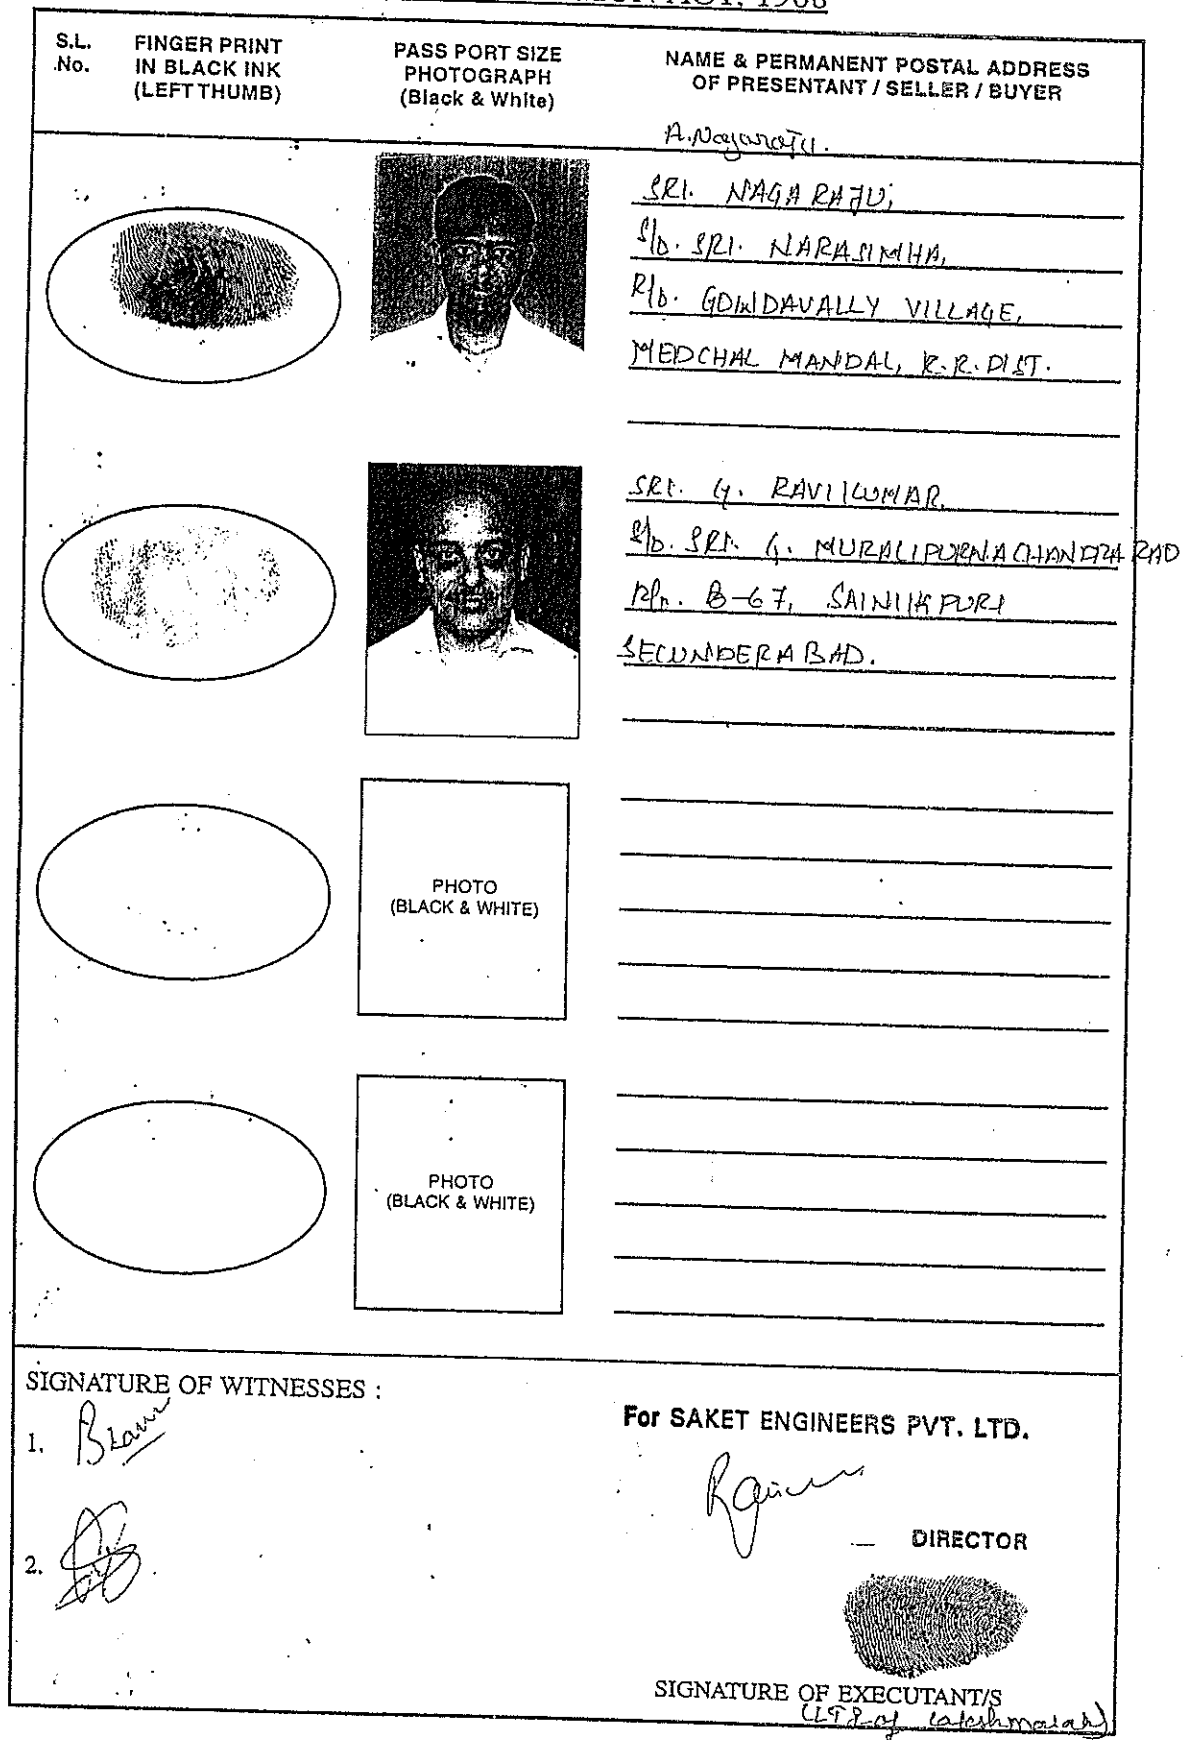 ACT, 1908
S.L. No.
FINGER PRINT IN BLACK INK (LEFT THUMB)
PASS PORT SIZE PHOTOGRAPH (Black & White)
NAME & PERMANENT POSTAL ADDRESS OF PRESENTANT / SELLER / BUYER
A. Nagaraju.
SRI. NAGARAJU,
S/o. SRI. NARASIMHA,
R/o. GOWDAVALLY VILLAGE,
MEDCHAL MANDAL, R.R. DIST.
SRI. G. RAVIKUMAR
S/o. SRI. G. MURALIPURNACHANDRA RAO
R/o. B-67, SAINIKPURI
SECUNDERABAD.
PHOTO
(BLACK & WHITE)
PHOTO
(BLACK & WHITE)
SIGNATURE OF WITNESSES :
1.
2.
For SAKET ENGINEERS PVT. LTD.
DIRECTOR
SIGNATURE OF EXECUTANT/S